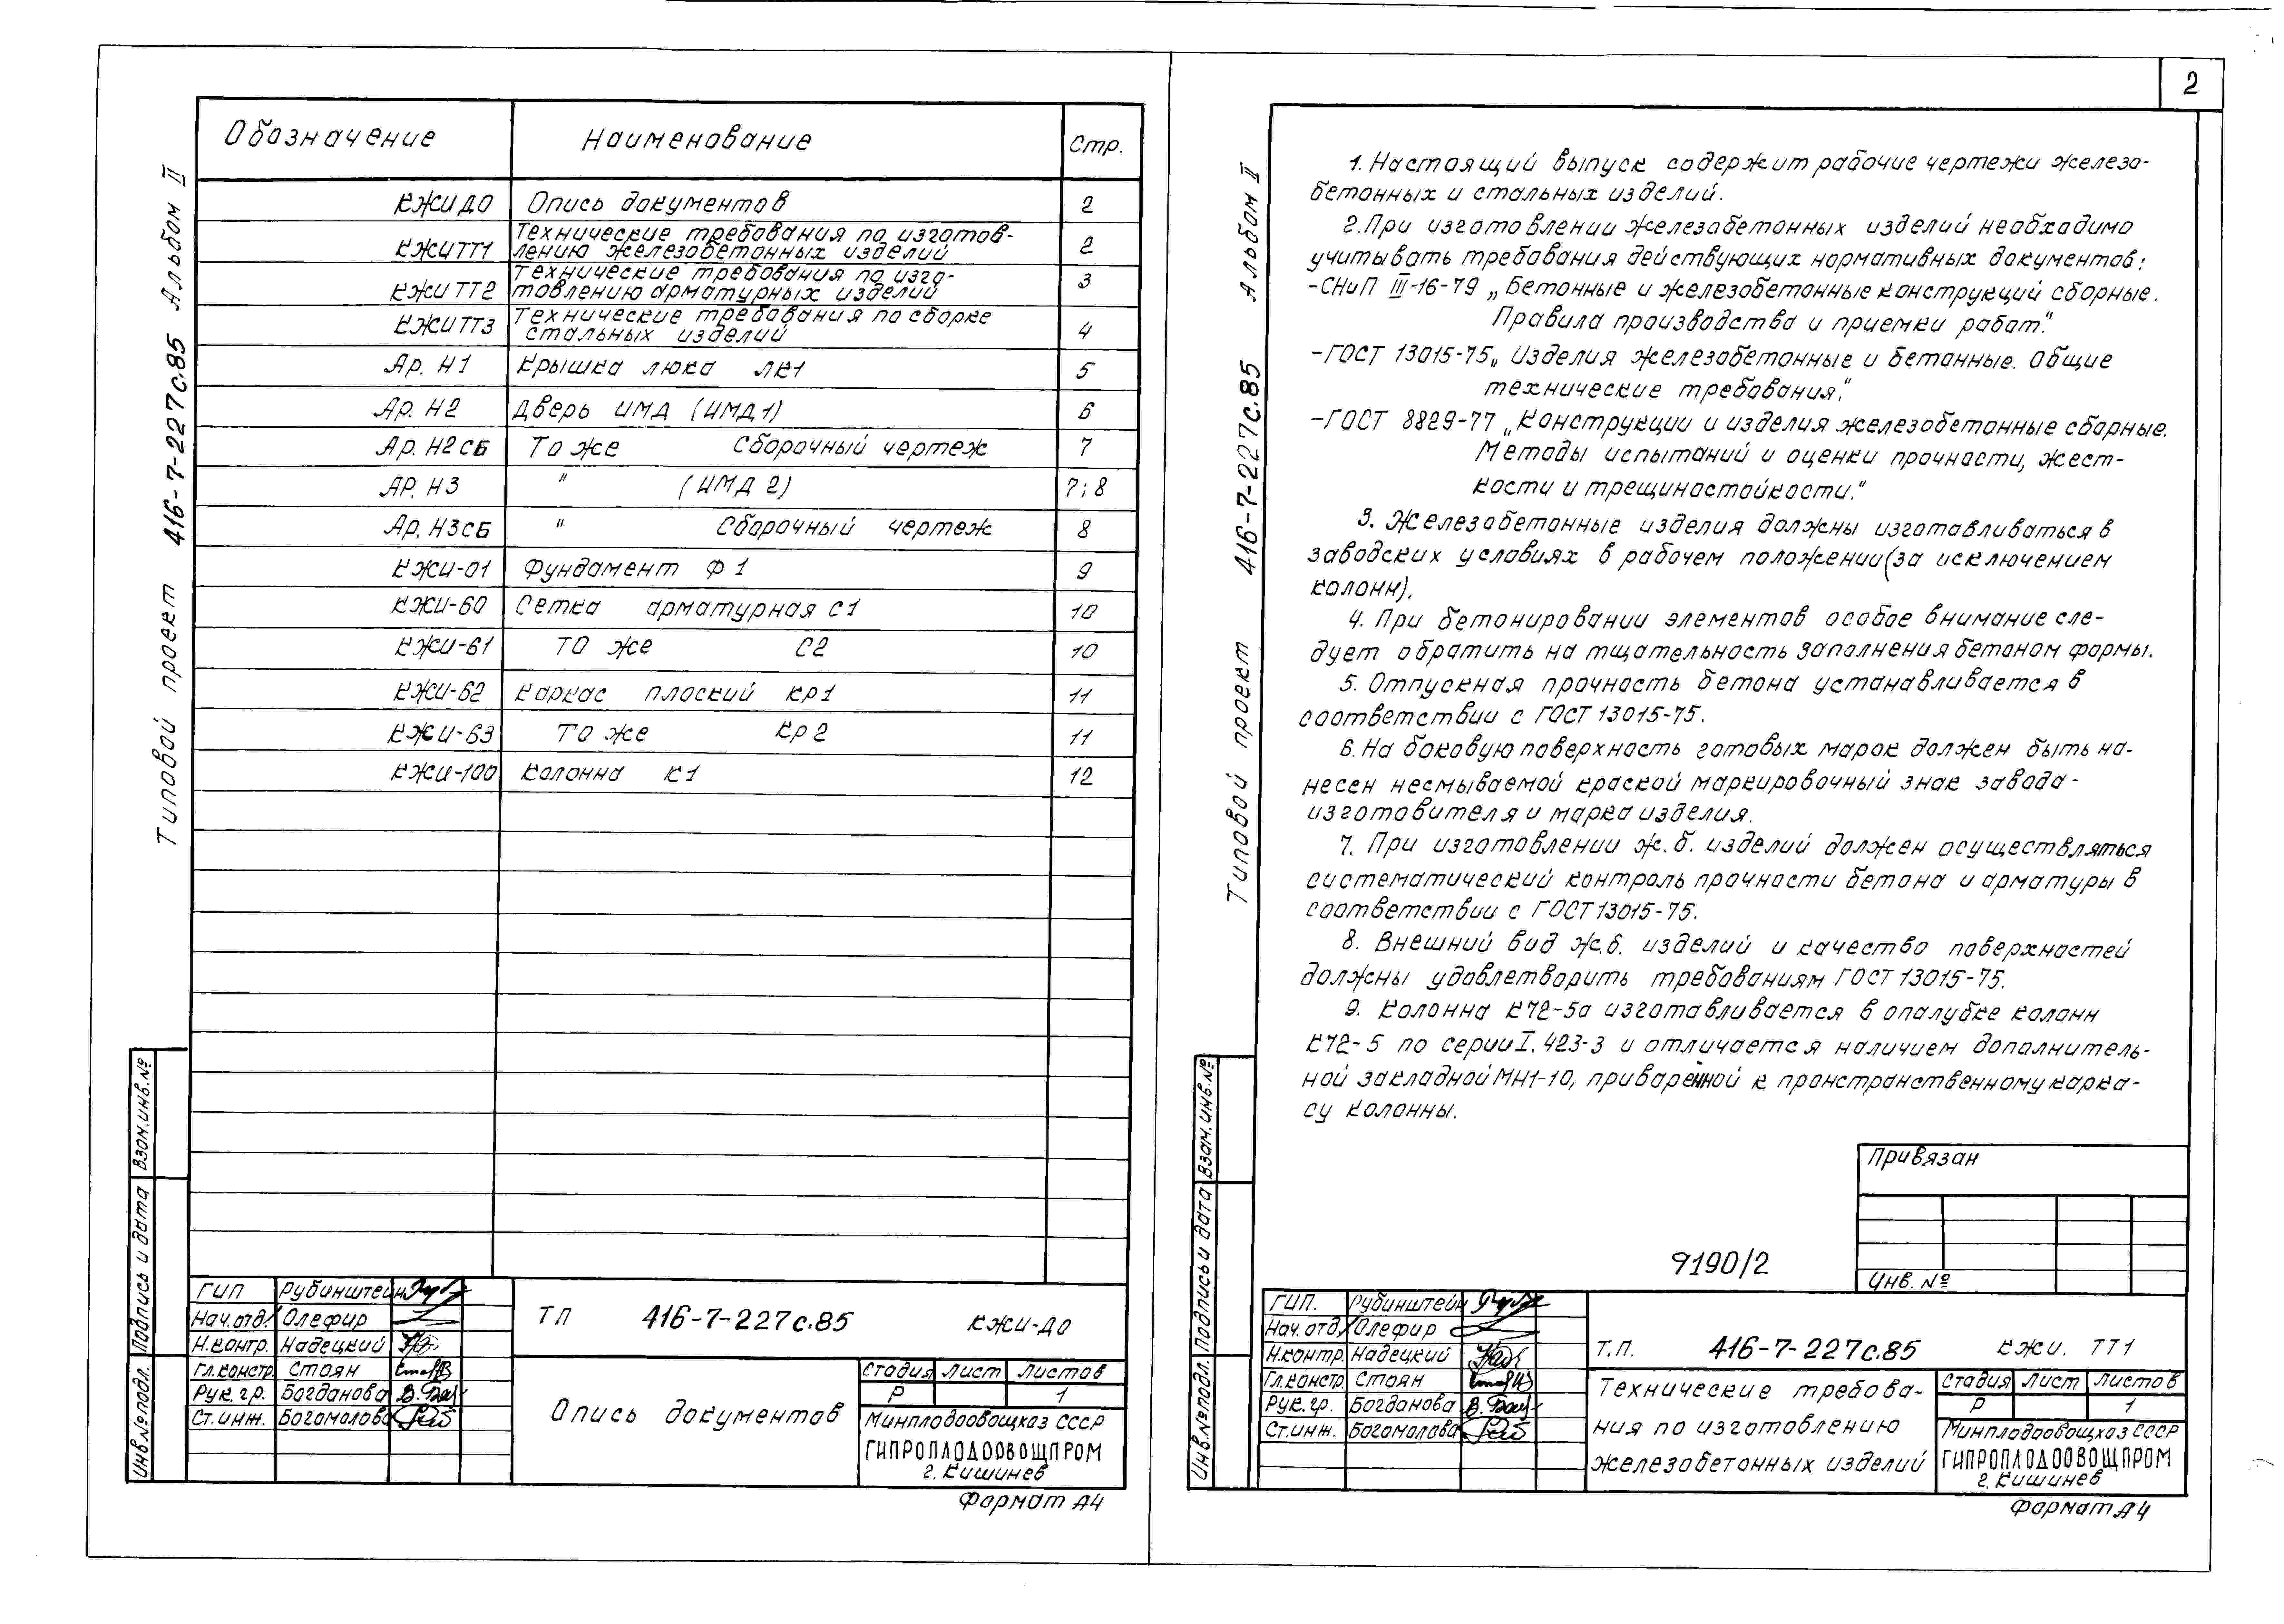 2
Типовой проект 416-7-227с.85 Альбом II
Обозначение Наименование Стр.
КЖИ ДО Опись документов 2
КЖИ ТТ1 Технические требования по изготов-
лению железобетонных изделий 2
КЖИ ТТ2 Технические требования по изго-
товлению арматурных изделий 3
КЖИ ТТ3 Технические требования по сборке
стальных изделий 4
Ар. И1 Крышка люка ЛК1 5
Ар. И2 Дверь ИМД (ИМД1) 6
Ар. И2СБ То же Сборочный чертеж 7
АР. И3 " (ИМД 2) 7; 8
Ар. И3СБ " Сборочный чертеж 8
КЖИ-01 Фундамент Ф1 9
КЖИ-60 Сетка арматурная С1 10
КЖИ-61 То же С2 10
КЖИ-62 Каркас плоский КР1 11
КЖИ-63 То же КР2 11
КЖИ-100 Колонна К1 12
Взам.инв.№
Подпись и дата
Инв.№подл.
ГИП Рубинштейн
Нач.отд. Олефир
Н.контр. Надецкий
Гл.констр. Стоян
Рук. гр. Богданова
Ст.инж. Богомолова
ТП 416-7-227с.85 КЖИ-ДО
Опись документов
Стадия Лист Листов
Р 1
Минплодоовощхоз СССР
ГИПРОПЛОДООВОЩПРОМ
г. Кишинев
Формат А4
Типовой проект 416-7-227с.85 Альбом II
1. Настоящий выпуск содержит рабочие чертежи железо-
бетонных и стальных изделий.
2. При изготовлении железобетонных изделий необходимо
учитывать требования действующих нормативных документов:
-СНиП III-16-79 „Бетонные и железобетонные конструкций сборные.
Правила производства и приемки работ."
-ГОСТ 13015-75 „Изделия железобетонные и бетонные. Общие
технические требования."
-ГОСТ 8829-77 „Конструкции и изделия железобетонные сборные.
Методы испытаний и оценки прочности, жест-
кости и трещиностойкости."
3. Железобетонные изделия должны изготавливаться в
заводских условиях в рабочем положении (за исключением
колонн).
4. При бетонировании элементов особое внимание сле-
дует обратить на тщательность заполнения бетоном формы.
5. Отпускная прочность бетона устанавливается в
соответствии с ГОСТ 13015-75.
6. На боковую поверхность готовых марок должен быть на-
несен несмываемой краской маркировочный знак завода-
изготовителя и марка изделия.
7. При изготовлении ж.б. изделий должен осуществляться
систематический контроль прочности бетона и арматуры в
соответствии с ГОСТ 13015-75.
8. Внешний вид ж.б. изделий и качество поверхностей
должны удовлетворить требованиям ГОСТ 13015-75.
9. Колонна К72-5а изготавливается в опалубке колонн
К72-5 по серии I.423-3 и отличается наличием дополнитель-
ной закладной МН1-10, приваренной к пронстранственному карка-
су колонны.
Привязан
Инв. №
9190/2
Взам.инв.№
Подпись и дата
Инв.№подл.
ГИП. Рубинштейн
Нач. отд. Олефир
Н.контр. Надецкий
Гл.констр. Стоян
Рук. гр. Богданова
Ст.инж. Богомолова
Т.П. 416-7-227с.85 КЖИ. ТТ1
Технические требова-
ния по изготовлению
железобетонных изделий
Стадия Лист Листов
Р 1
Минплодоовощхоз СССР
ГИПРОПЛОДООВОЩПРОМ
г. Кишинев
Формат А4